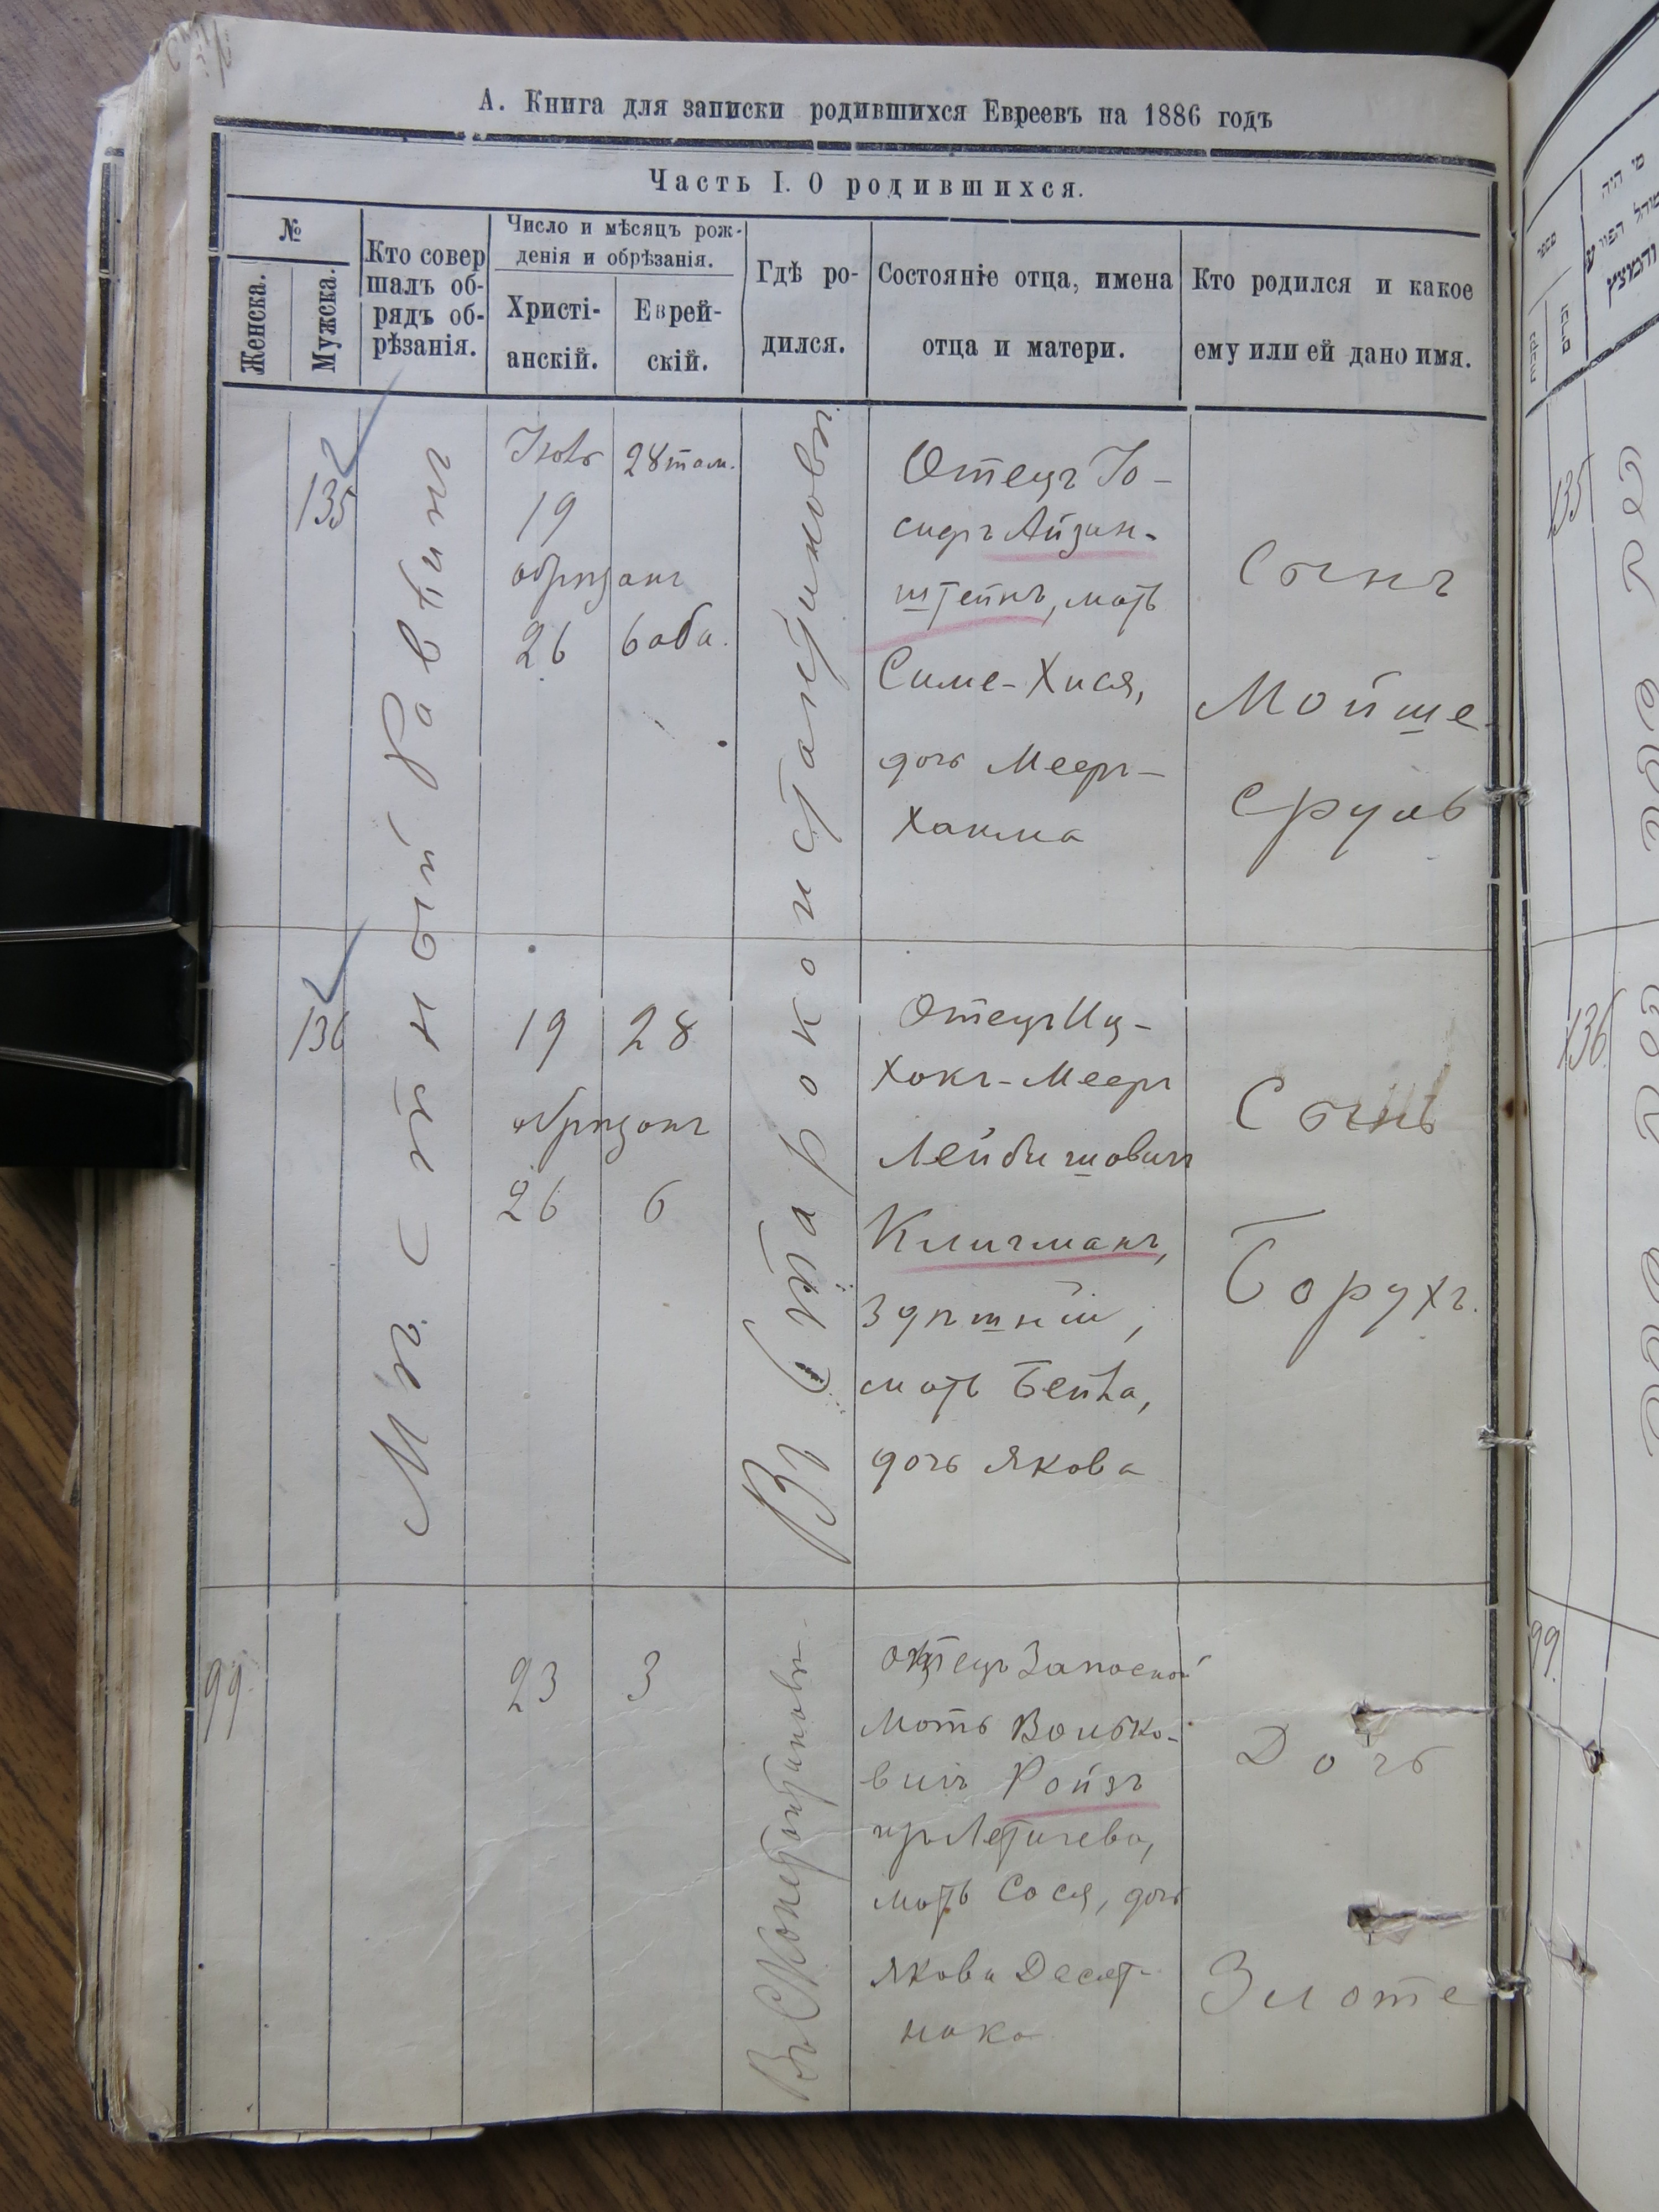 А. Книга для записки родившихся Евреевъ на 1886 годъ
Часть I. О родившихся.
№
Женска.
Мужска.
Кто совер
шалъ об-
рядъ об-
рѣзанія.
Число и мѣсяцъ рож-
денія и обрѣзанія.
Христі-
анскій.
Еврей-
скій.
Гдѣ ро-
дился.
Состояніе отца, имена
отца и матери.
Кто родился и какое
ему или ей дано имя.
Мѣстный Раввинъ
Въ Староконстантиновѣ
135
Іюль
19
обрѣзанъ
26
28 там.
6 аба.
Отецъ Іо-
сифъ Айзин-
штейнъ, мать
Симе-Хися,
дочь Меера-
Хаима
Сынъ
Мойше
Сруль
136
19
28
обрѣзанъ
26
6
Отецъ Иц-
хокъ-Мееръ
Лейбишовичъ
Клигманъ,
здѣшній,
мать Бейла,
дочь Якова
Сынъ
Борухъ.
99
23
3
Въ С Константиновѣ
отецъ Запасной
Моть Волько-
вичъ Ройзъ
изъ Летичева,
мать Сося, дочь
Якова Десят-
ника
Дочь
Злоте
135
136
99.